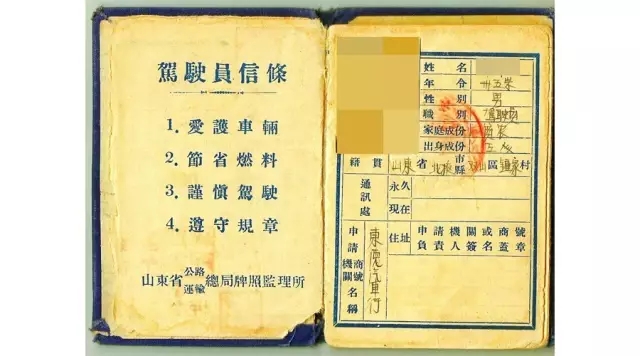 駕駛員信條
1. 愛護車輛
2. 節省燃料
3. 謹慎駕駛
4. 遵守規章
山東省公路運輸總局牌照監理所
姓名
年令 卅五岁
性別 男
職別 駕駛員
家庭成份
出身成份
籍貫 山東省 市縣 區 村
通訊處 永久
現在
申請機關商號名稱 東德汽車行
住址
申請機關或商號
負責人簽名蓋章